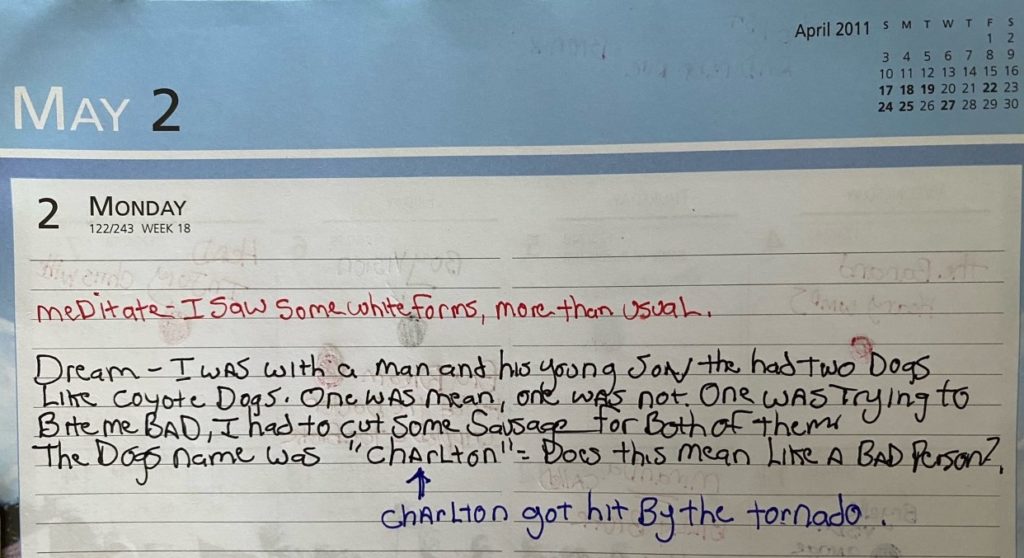 April 2011 S M T W T F S
1 2
3 4 5 6 7 8 9
10 11 12 13 14 15 16
17 18 19 20 21 22 23
24 25 26 27 28 29 30
MAY 2
2 MONDAY
122/243 WEEK 18
meDitate - I Saw Some white forms, more than usual.
Dream - I WAS with a man and his young SON the had two Dogs
Like coyote Dogs. One WAS mean, one was not. One WAS Trying to
Bite me BAD, I had to cut Some Sausage for Both of them
The Dogs name was "ChArLton" = Does this mean Like A BAD Person?,
chArLton got hit By the tornado.